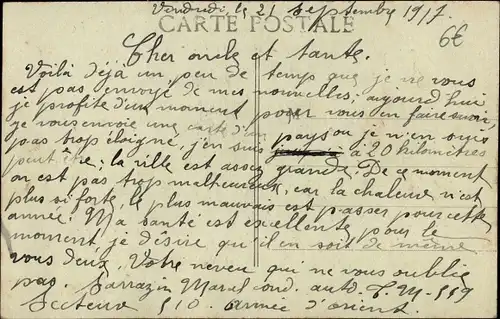 Vendredi le 21 Septembre 1917
CARTE POSTALE
6€
Cher oncle et tante.
Voilà déjà un peu de temps que je ne vous
est pas envoyé de mes nouvelles; aujourd'hui
je profite d'un moment pour vous en faire savoir,
je vous envoie une carte d'un pays ou je n'en suis
pas trop éloigné, j'en suis à 20 kilomètres
peut être; la ville est assez grande. De ce moment
on est pas trop malheureux, car la chaleur n'est
plus si forte, le plus mauvais est passer pour cette
année. Ma santé est excellente pour le
moment, je désire qu'il en soit de même
vous deux. Votre neveu qui ne vous oublie
pas. Sarrazin Marcel cond. auto. T.M-559
Secteur 510. Armée d'orient.